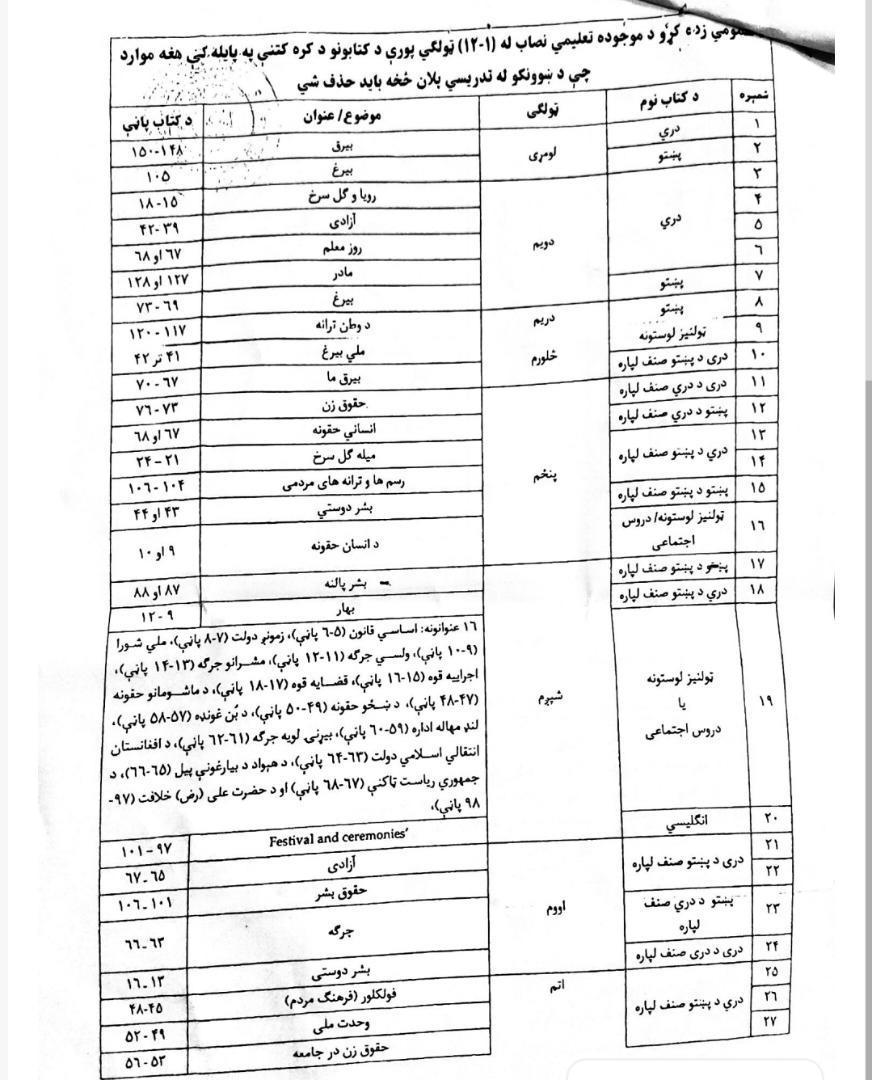 عمومي زده کړو د موجوده تعلیمي نصاب له (۱-۱۲) ټولګي پورې د کتابونو د کره کتنې په پایله کې هغه موارد
چې د ښوونکو له تدریسي پلان څخه باید حذف شي
شمېره د کتاب نوم ټولګی موضوع/ عنوان د کتاب پاڼې
۱ دري لومړی بیرق ۱۴۸-۱۵۰
۲ پښتو بیرغ ۱۰۵
۳ دري دویم رویا و گل سرخ ۱۵-۱۸
۴ آزادی ۳۹-۴۲
۵ روز معلم ۶۷ او ۶۸
۶ مادر ۱۲۷ او ۱۲۸
۷ پښتو بیرغ ۶۹-۷۳
۸ پښتو دریم د وطن ترانه ۱۱۷-۱۲۰
۹ ټولنیز لوستونه څلورم ملي بیرغ ۴۱ تر ۴۲
۱۰ دری د پښتو صنف لپاره بیرق ما ۶۷-۷۰
۱۱ دری د دري صنف لپاره پنځم حقوق زن ۷۳-۷۶
۱۲ پښتو د دري صنف لپاره انساني حقونه ۶۷ او ۶۸
۱۳ دري د پښتو صنف لپاره میله گل سرخ ۲۱-۲۴
۱۴ رسم ها و ترانه های مردمی ۱۰۴-۱۰۶
۱۵ پښتو د پښتو صنف لپاره بشر دوستي ۴۳ او ۴۴
۱۶ ټولنیز لوستونه/ دروس
اجتماعی د انسان حقونه ۹ او ۱۰
۱۷ پښتو د پښتو صنف لپاره شپږم بشر پالنه ۸۷ او ۸۸
۱۸ دري د پښتو صنف لپاره بهار ۹-۱۲
۱۹ ټولنیز لوستونه
یا
دروس اجتماعی
۱۶ عنوانونه: اساسي قانون (۵-۶ پاڼې)، زمونږ دولت (۷-۸ پاڼې)، ملي شورا
(۹-۱۰ پاڼې)، ولسي جرگه (۱۱-۱۲ پاڼې)، مشرانو جرگه (۱۳-۱۴ پاڼې)،
اجراییه قوه (۱۵-۱۶ پاڼې)، قضایه قوه (۱۷-۱۸ پاڼې)، د ماشومانو حقونه
(۴۷-۴۸ پاڼې)، د ښځو حقونه (۴۹-۵۰ پاڼې)، د بُن غونډه (۵۷-۵۸ پاڼې)،
لنډ مهاله اداره (۵۹-۶۰ پاڼې)، بیړنی لویه جرگه (۶۱-۶۲ پاڼې)، د افغانستان
انتقالي اسلامي دولت (۶۳-۶۴ پاڼې)، د هېواد د بیارغونې پیل (۶۵-۶۶)، د
جمهوري ریاست ټاکنې (۶۷-۶۸ پاڼې) او د حضرت علی (رض) خلافت (۹۷-
۹۸ پاڼې)،
۲۰ انگلیسي Festival and ceremonies' ۹۷-۱۰۱
۲۱ دری د پښتو صنف لپاره اووم آزادی ۶۵-۶۷
۲۲ حقوق بشر ۱۰۱-۱۰۶
۲۳ پښتو د دري صنف
لپاره جرگه ۶۳-۶۶
۲۴ دری د دری صنف لپاره بشر دوستی ۱۳-۱۶
۲۵ دري د پښتو صنف لپاره اتم فولکلور (فرهنگ مردم) ۴۵-۴۸
۲۶ وحدت ملی ۴۹-۵۲
۲۷ حقوق زن در جامعه ۵۳-۵۶